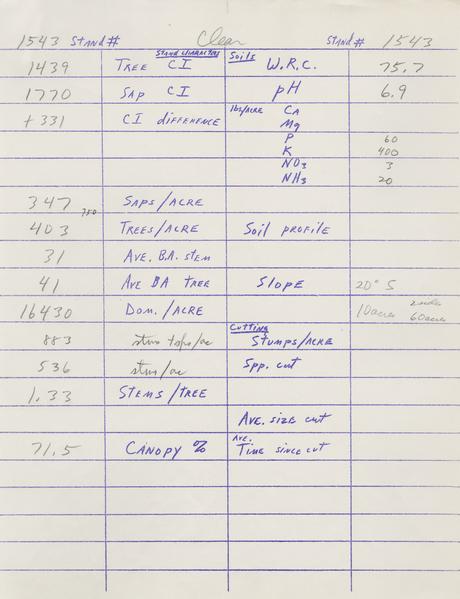 1543 Stand # Clear Stand # 1543
Stand Characters Soils
1439 Tree CI W.R.C. 75.7
1770 Sap CI pH 6.9
+331 CI difference lbs/acre Ca
Mg
P 60
K 400
NO3 3
NH3 20
347 750 Saps/acre
403 Trees/acre Soil profile
31 Ave. B.A. stem
41 Ave BA tree Slope 20° S
16430 Dom./acre 10 acres 60 acres
Cutting
883 stms + sps/ac Stumps/acre
536 stms/ac Spp. cut
1.33 Stems/tree
Ave. size cut
71.5 Canopy % Ave. Time since cut